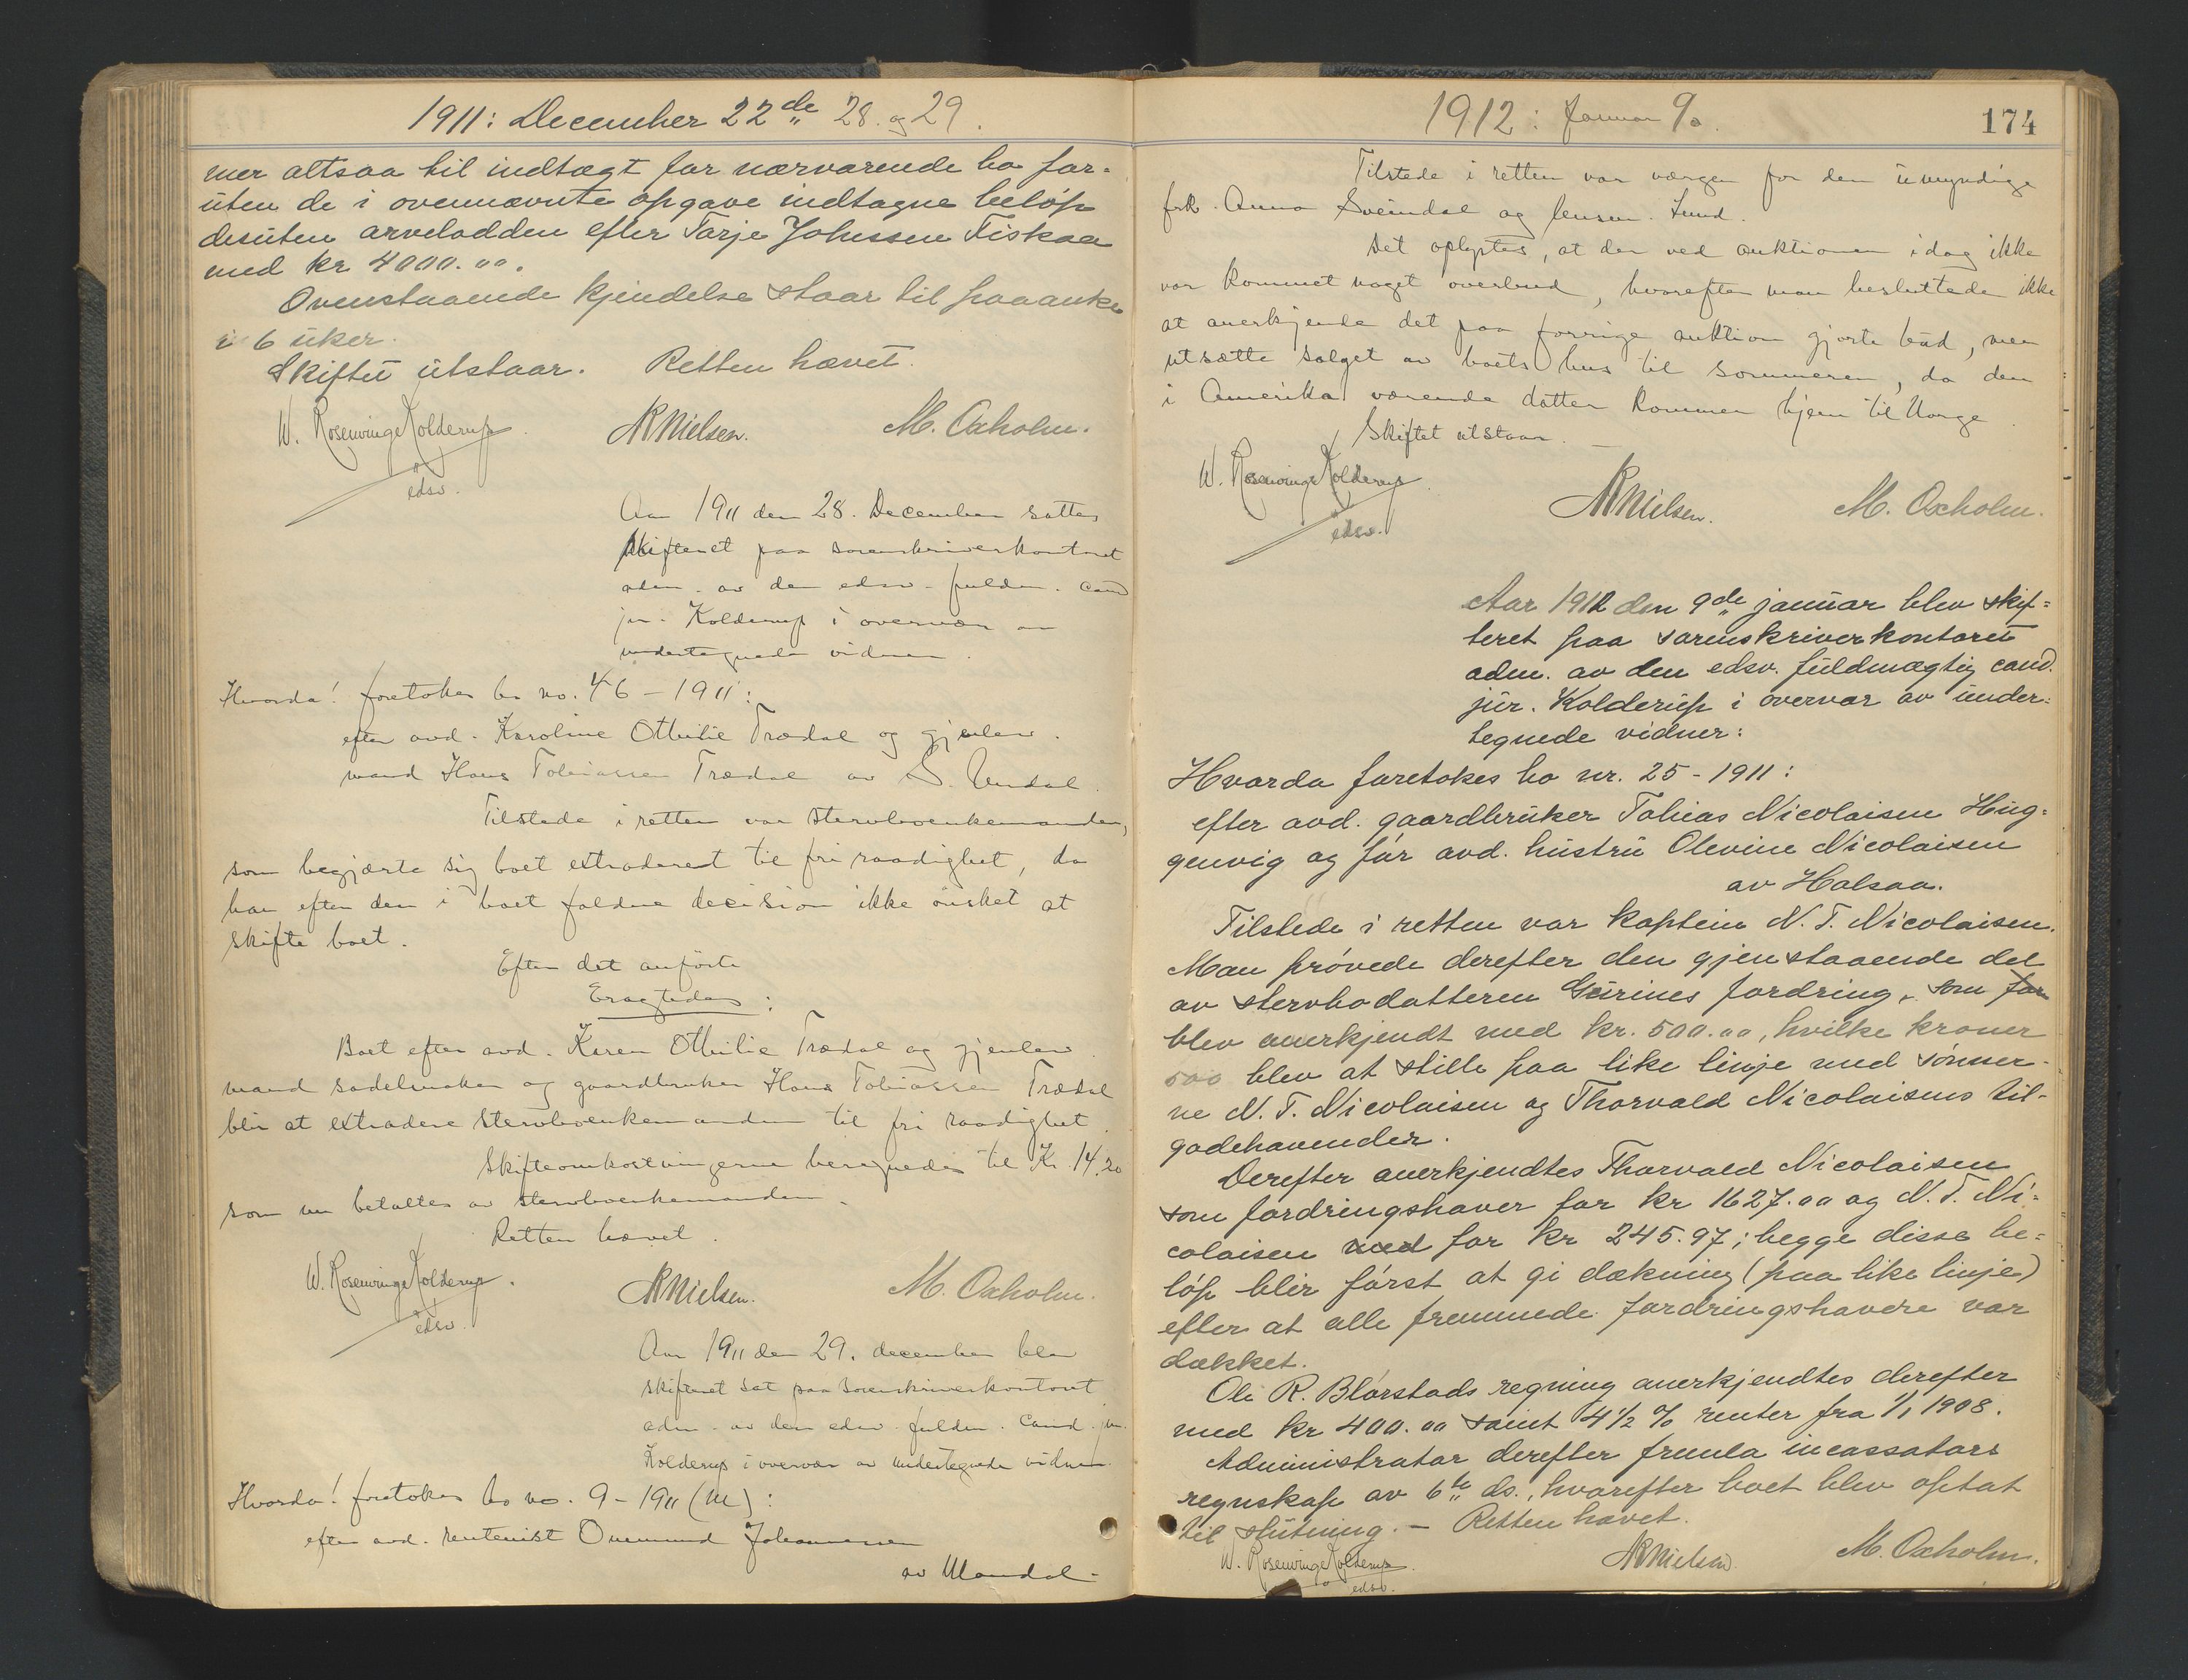 1911: December 22de 28. og 29.
mer altsaa til indtægt for nærværende bo for-
uten de i ovennævnte opgave indtagne beløp
desuten arvelodden efter Tarje Johnssen Fiskaa
med kr 4000.00.
Ovenstaaende kjendelse staar til paaanke
i 6 uker.
Skiftet utstaar. Retten hævet.
W. Rosenvinge Kolderup
edsv.
NRNielsen.
M. Oxholm.
Aar 1911 den 28. December sattes
skifteret paa sorenskriverkontoret
adm. av den edsv. fuldm. cand
jur. Kolderup i overvær av
undertegnede vidner.
Hvorda! foretokes bo no. 46 - 1911:
efter avd. Karoline Othilie Trædal og gjenlev.
mand Hans Tobiassen Trædal av S. Undal.
Tilstede i retten var stervboenkemanden,
som begjærte sig boet extraderet til fri raadighet, da
han efter den i boet faldne decision ikke ønsket at
skifte boet.
Efter det anførte
Eragtedes:
Boet efter avd. Karen Othilie Trædal og gjenlev.
mand sadelmaker og gaardbruker Hans Tobiassen Trædal
blir at extradere stervboenkemanden til fri raadighet.
Skifteomkostningerne beregnedes til Kr. 14.20
som nu betaltes av stervboenkemanden.
Retten hævet.
W. Rosenvinge Kolderup.
edsv.
NRNielsen.
M. Oxholm.
Aar 1911 den 29. december blev
skifteret sat paa sorenskriverkontoret
adm. av den edsv. fuldm. cand. jur.
Kolderup i overvær av undertegnede vidner.
Hvorda! foretokes bo no. 9 - 1911 (M):
efter avd. rentenist Onemund Johannessen
av Mandal -
1912: Januar 9.
174
Tilstede i retten var værgen for den umyndige
frk. Anna Sveindal og lensm. Lund.
Det oplystes, at der ved auktionen idag ikke
var kommet noget overbud, hvorefter man besluttede ikke
at anerkjende det paa forrige auktion gjorte bud, men
utsætte salget av boets hus til sommeren, da den
i Amerika værende datter kommer hjem til Norge
Skiftet utstaar. -
W. Rosenvinge Kolderup.
edsv.
NRNielsen.
M. Oxholm.
Aar 1912 den 9de januar blev skif-
teret paa sorenskriverkontoret
adm. av den edsv. fuldmægtig cand.
jur. Kolderup i overvær av under-
tegnede vidner:
Hvorda foretokes bo nr. 25 - 1911:
efter avd. gaardbruker Tobias Nicolaisen Hug-
genvig og før avd. hustru Olevine Nicolaisen
av Halsaa.
Tilstede i retten var kaptein N. T. Nicolaisen.
Man prøvede derefter den gjenstaaende del
av stervbodatteren Gurines fordring, som for
blev anerkjendt med kr. 500.00, hvilke kroner
500 blev at stille paa like linje med sønner-
ne N. T. Nicolaisen og Thorvald Nicolaisens til-
godehavender.
Derefter anerkjendtes Thorvald Nicolaisen
som fordringshaver for kr 1627.00 og N. T. Ni-
colaisen med for kr 245.97; begge disse be-
løp blir først at gi dækning (paa like linje)
efter at alle fremmede fordringshavere var
dækket.
Ole R. Blørstads regning anerkjendtes derefter
med kr 400.00 samt 4 1/2 % renter fra 1/1 1908.
Administrator derefter fremla incassators
regnskap av 6te ds., hvorefter boet blev optat
til slutning. - Retten hævet.
W. Rosenvinge Kolderup.
edsv.
NRNielsen.
M. Oxholm.